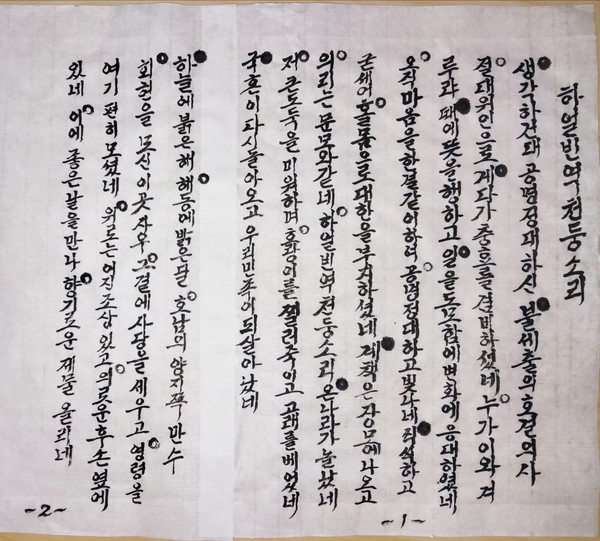 하얼빈역 천둥소리
생각하건대 공평정대하신 불세출의 호걸의사
절대위인으로 게다가 충효를 겸비하셨네 누가 이와 겨
루랴 때에 뜻을 행하고 일을 도모함에 변화에 응대하였네
오직 마음을 한결같이하여 공평정대하고 빛나네
굳세어 홀몸으로 대한을 부지하셨네 계책은 장문에 나오고
의리는 문모와 같네 하얼빈역 천둥소리 온나라가 놀랐네
저 큰도둑을 미워하며 찔러죽이고 고래를 베었네
국혼이 다시 돌아오고 우리민족이 되살아났네
~1~
하늘에 붉은해 해동에 밝은달 호남의 양지쪽 만수
회헌을 모신 이곳 사우 그곁에 사당을 세우고 영령을
여기 편히 모셨네 위로는 어진조상 있고 의로운 후손 옆에
있네 이에 좋은날을 만나 향기로운 제물 올리네
~2~